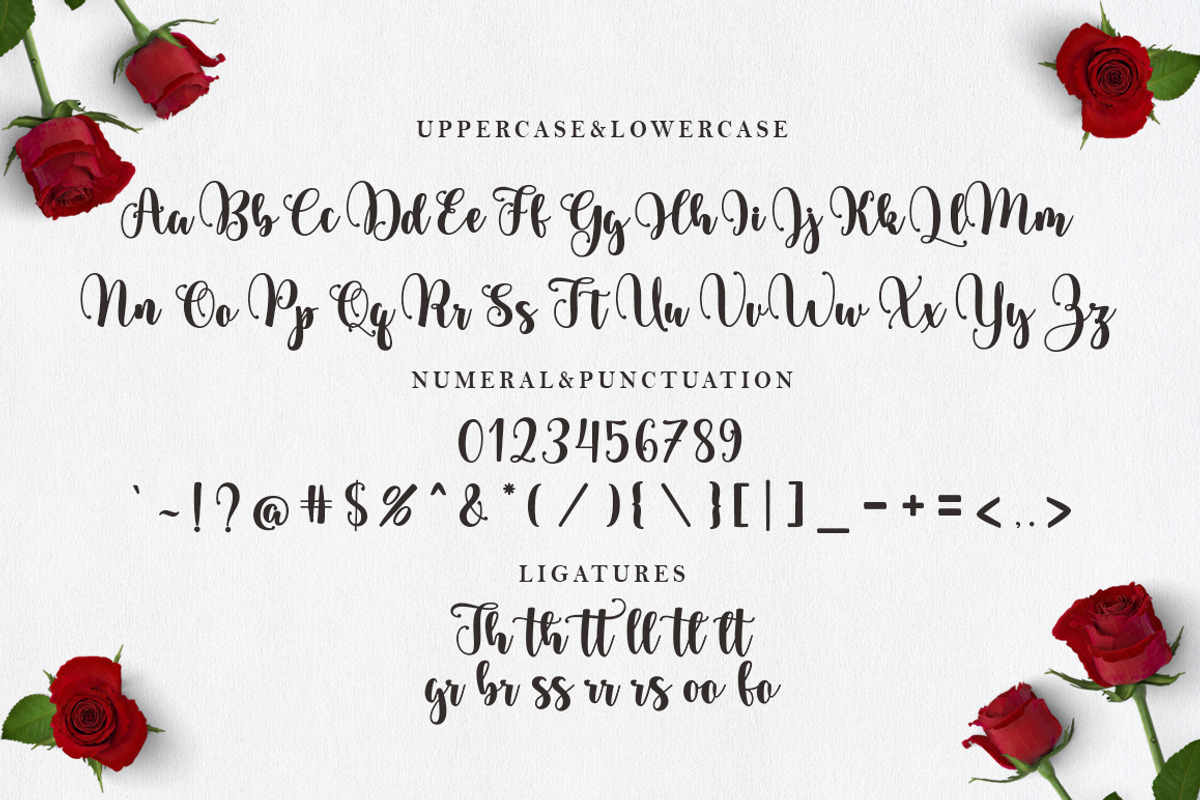 UPPERCASE&LOWERCASE
Aa Bb Cc Dd Ee Ff Gg Hh Ii Jj Kk Ll Mm
Nn Oo Pp Qq Rr Ss Tt Uu Vv Ww Xx Yy Zz
NUMERAL&PUNCTUATION
0123456789
` ~ ! ? @ # $ % ^ & * ( / ) { \ } [ | ] _ - + = < , . >
LIGATURES
Th th tt ll tl lt
gr br ss rr rs oo fo